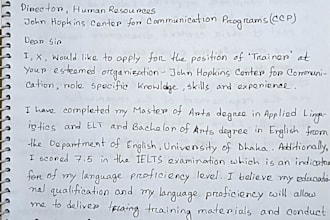 Director, Human Resources
John Hopkins Center for Communication Programs (CCP)
Dear Sir
I, X, would like to apply for the position of "Trainer" at
your esteemed organization - John Hopkins Center for Communi-
cation, role specific knowledge, skills and experience.
I have completed my Master of Arts degree in Applied Ling-
istics and ELT and Bachelor of Arts degree in English from
the Department of English, University of Dhaka. Additionally,
I scored 7.5 in the IELTS examination which is an indicator
for of my language proficiency level. I believe my educatio-
nal qualification and my language proficiency will allow
me to deliver training materials and conduct